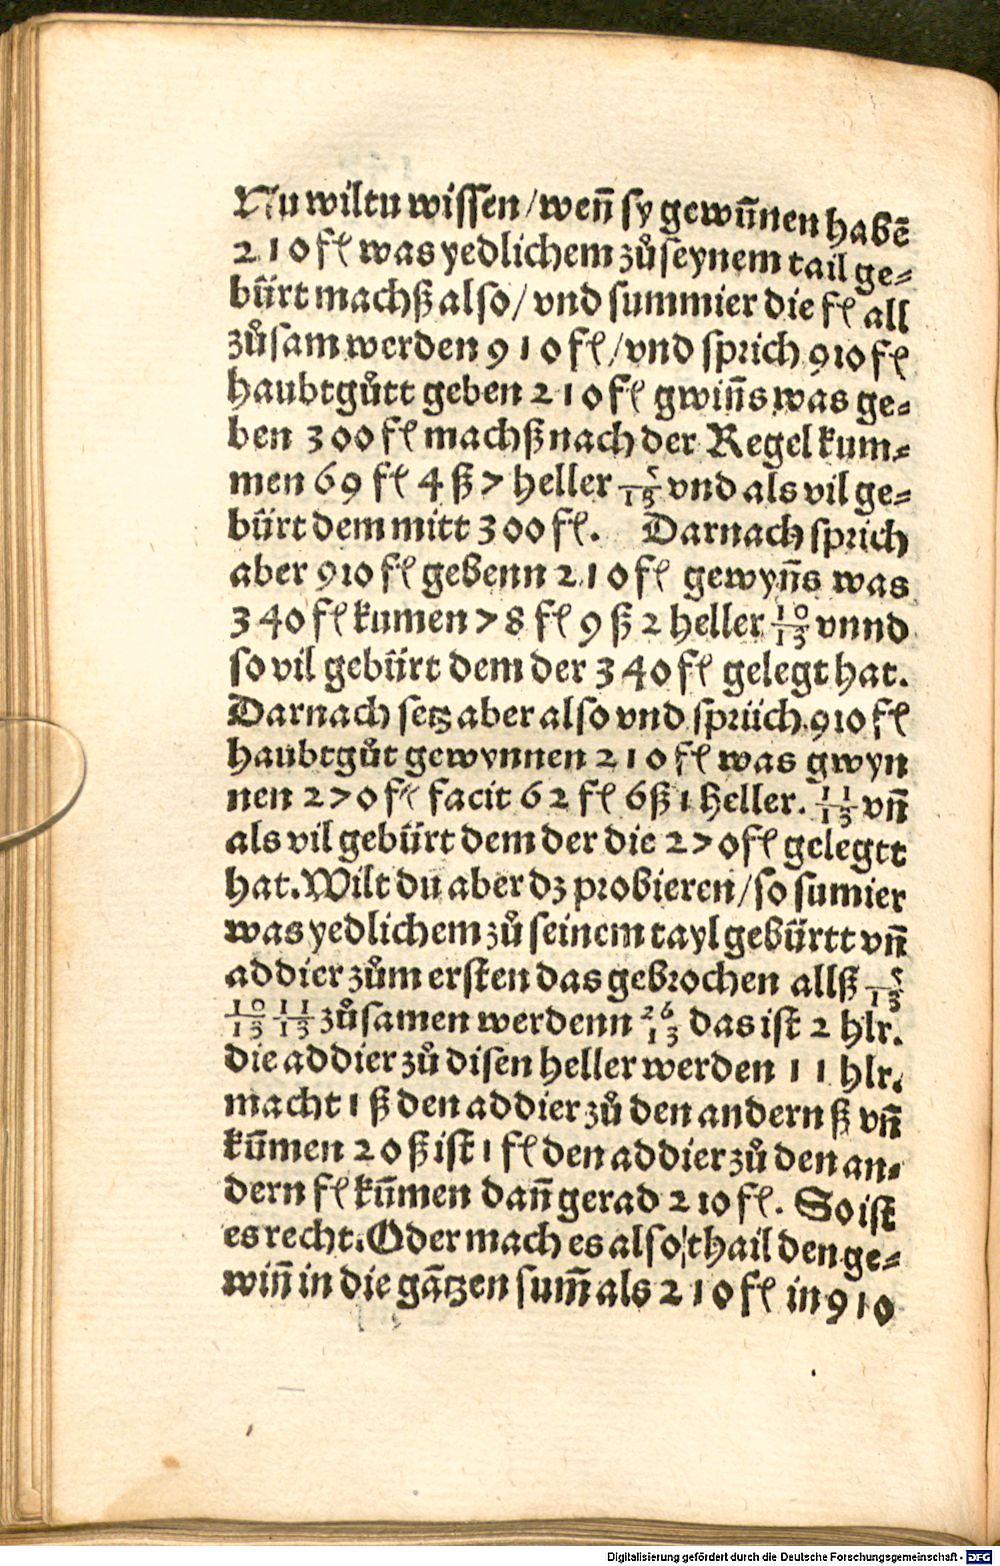 Nu wiltu wissen/ weñ sy gewūnen habē
210 fl was yedlichem zů seynem tail ge⸗
bürt machß also/ vnd summier die fl all
zůsam werden 910 fl/ vnd sprich 910 fl
haubtgůtt geben 210 fl gwiñs was ge⸗
ben 300 fl machß nach der Regel kum⸗
men 69 fl 4 ß 7 heller 5/13 vnd als vil ge⸗
bürt dem mitt 300 fl. Darnach sprich
aber 910 fl gebenn 210 fl gewyñs was
340 fl kumen 78 fl 9 ß 2 heller 10/13 vnnd
so vil gebürt dem der 340 fl gelegt hat.
Darnach setz aber also vnd sprüch 910 fl
haubtgůt gewynnen 210 fl was gwyn
nen 270 fl facit 62 fl 6ß 1 heller. 11/13 vñ
als vil gebürt dem der die 270 fl gelegtt
hat. Wilt du aber dz probieren/ so sumier
was yedlichem zů seinem tayl gebürtt vñ
addier zům ersten das gebrochen allß 5/13
10/13 11/13 zůsamen werdenn 26/13 das ist 2 hlr.
die addier zů disen heller werden 11 hlr.
macht 1 ß den addier zů den andern ß vñ
kūmen 20 ß ist 1 fl den addier zů den an⸗
dern fl kūmen dañ gerad 210 fl. So ist
es recht. Oder mach es also/ thail den ge⸗
wiñ in die gātzen sum̄ als 210 fl in 910
Digitalisierung gefördert durch die Deutsche Forschungsgemeinschaft - DFG